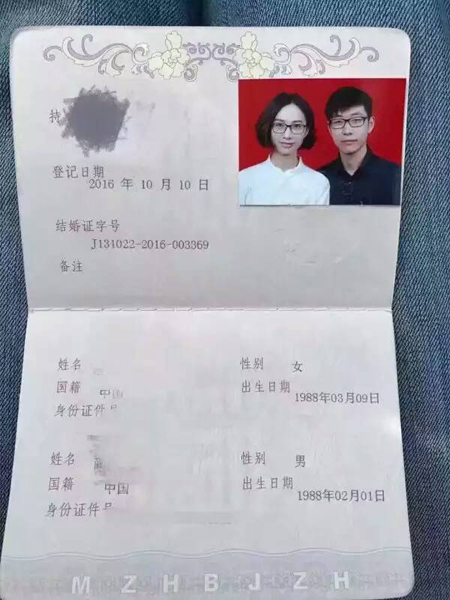 持
登记日期
2016 年 10 月 10 日
结婚证字号
J131022-2016-003369
备注
姓名
性别 女
国籍 中国
出生日期 1988年03月09日
身份证件号
姓名
性别 男
国籍 中国
出生日期 1988年02月01日
身份证件号
MZHBJZH